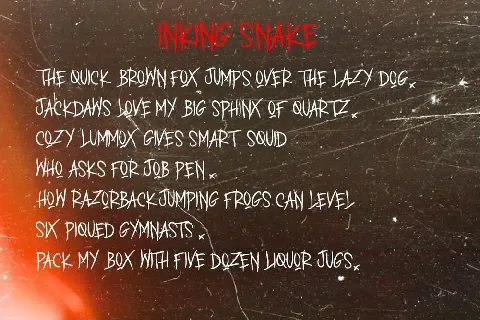 INKING SNAKE
THE QUICK BROWN FOX JUMPS OVER THE LAZY DOG.
JACKDAWS LOVE MY BIG SPHINX OF QUARTZ.
COZY LUMMOX GIVES SMART SQUID
WHO ASKS FOR JOB PEN.
HOW RAZORBACK JUMPING FROGS CAN LEVEL
SIX PIQUED GYMNASTS.
PACK MY BOX WITH FIVE DOZEN LIQUOR JUGS.